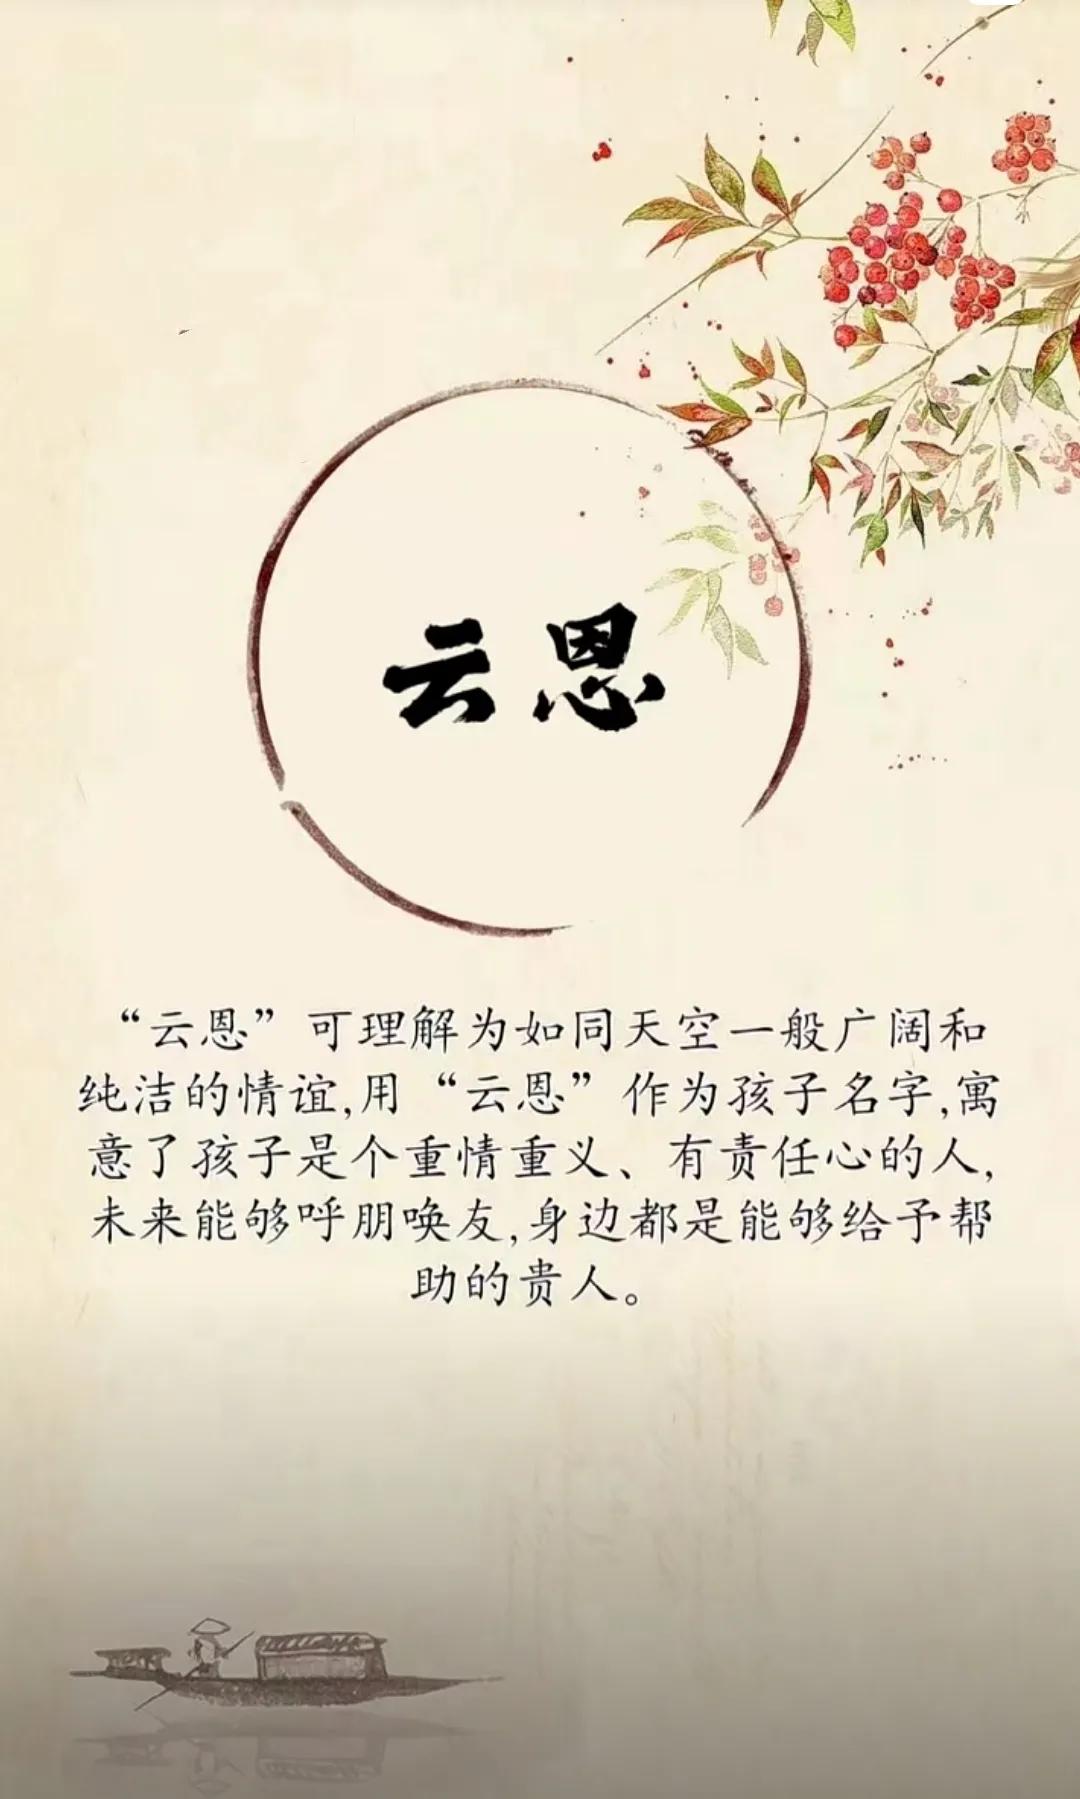 云恩
“云恩”可理解为如同天空一般广阔和
纯洁的情谊,用“云恩”作为孩子名字,寓
意了孩子是个重情重义、有责任心的人,
未来能够呼朋唤友,身边都是能够给予帮
助的贵人。